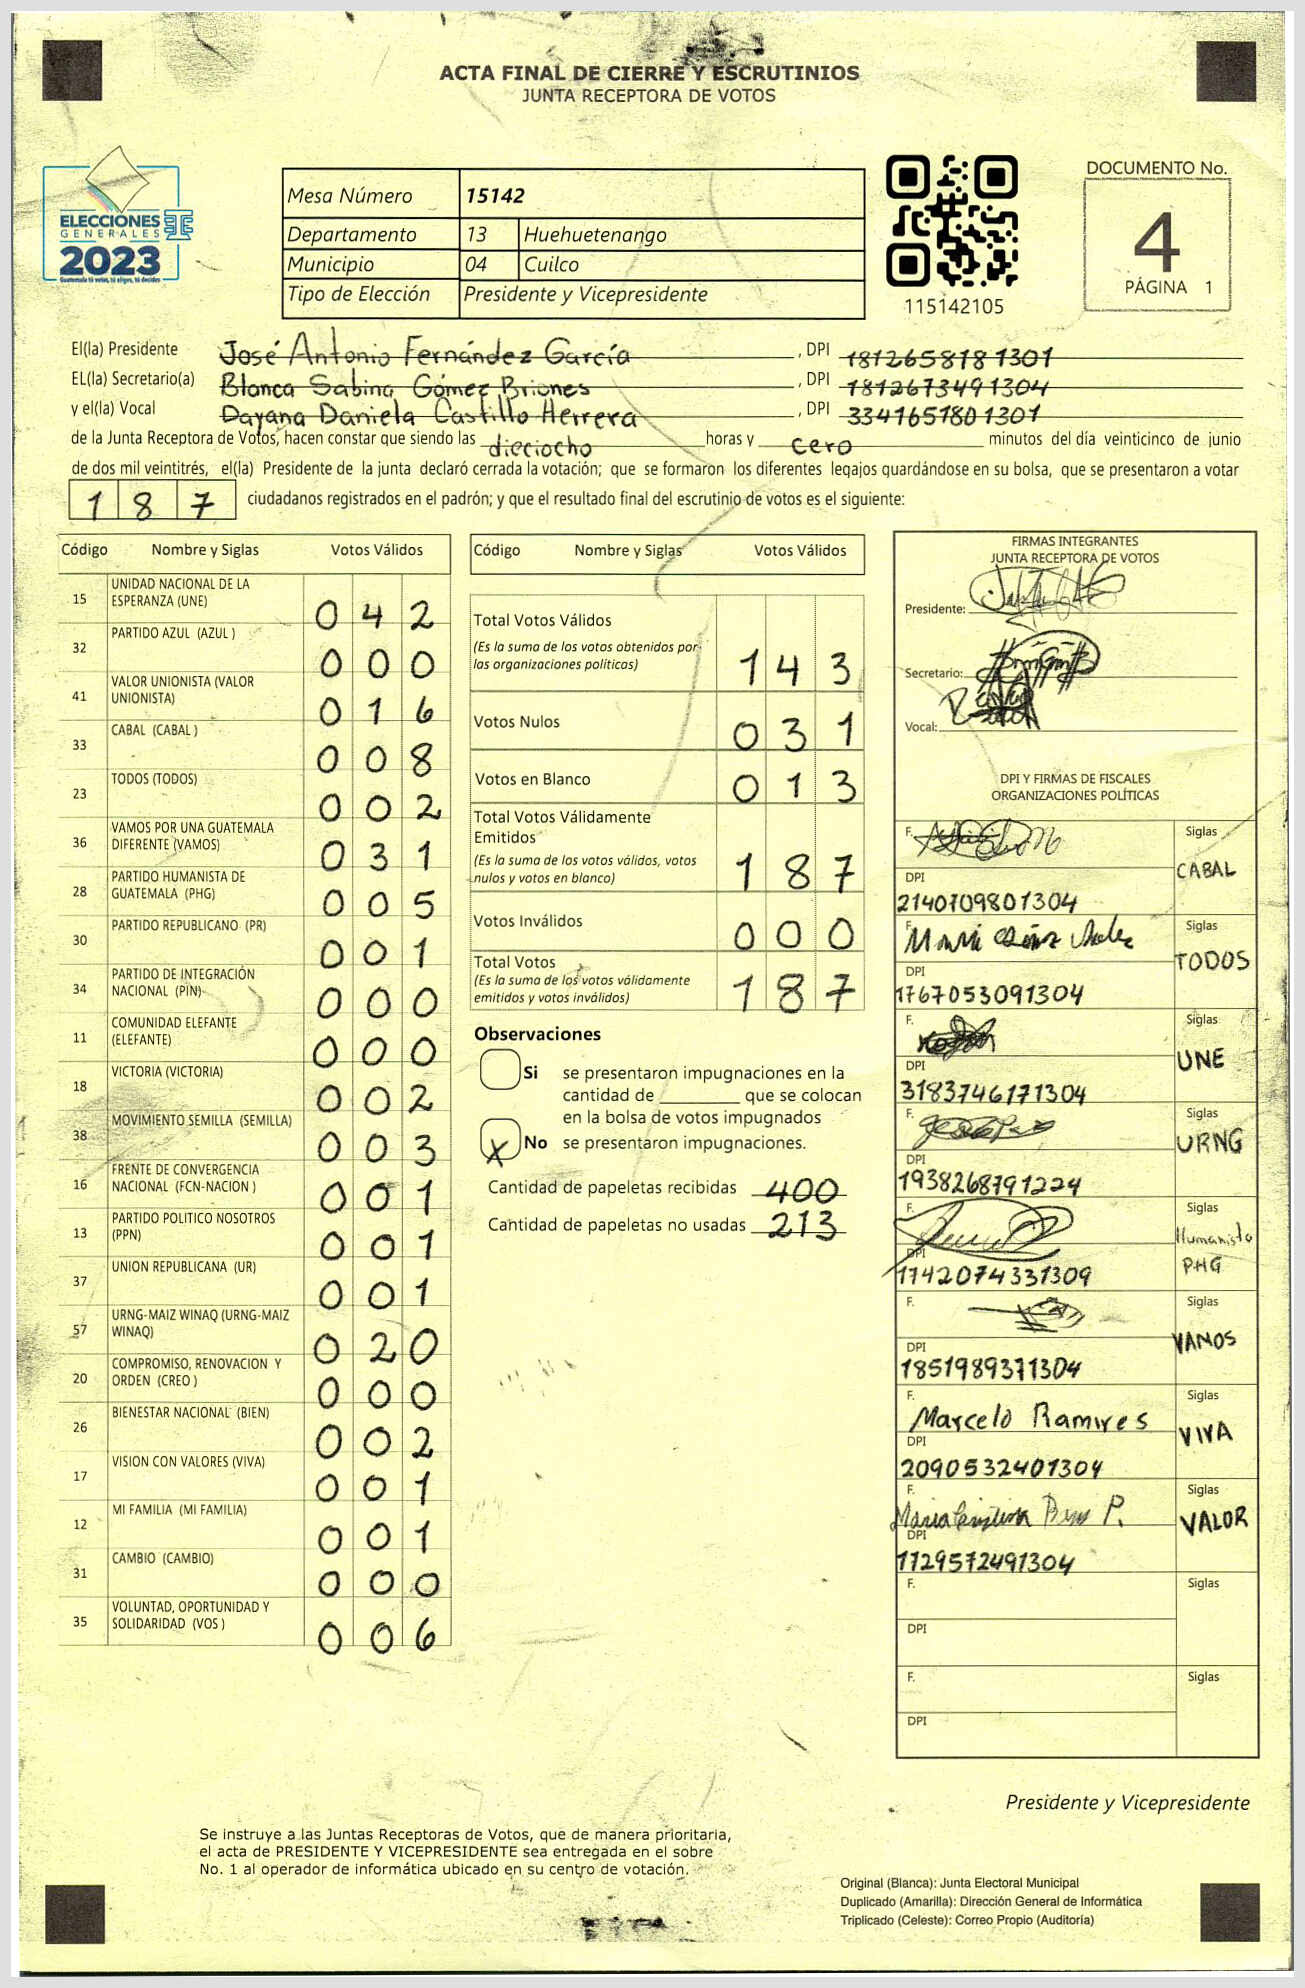 ACTA FINAL DE CIERRE Y ESCRUTINIOS
JUNTA RECEPTORA DE VOTOS
ELECCIONES
GENERALES
2023
Guatemala tú votas, tú eliges, tú decides
Mesa Número 15142
Departamento 13 Huehuetenango
Municipio 04 Cuilco
Tipo de Elección Presidente y Vicepresidente
115142105
DOCUMENTO No.
4
PÁGINA 1
El(la) Presidente José Antonio Fernández García , DPI 1812658181301
EL(la) Secretario(a) Blanca Sabina Gómez Briones , DPI 1812673491304
y el(la) Vocal Dayana Daniela Castillo Herrera , DPI 3341651801301
de la Junta Receptora de Votos, hacen constar que siendo las dieciocho horas y cero minutos del día veinticinco de junio
de dos mil veintitrés, el(la) Presidente de la junta declaró cerrada la votación; que se formaron los diferentes legajos guardándose en su bolsa, que se presentaron a votar
187 ciudadanos registrados en el padrón; y que el resultado final del escrutinio de votos es el siguiente:
Código Nombre y Siglas Votos Válidos
15 UNIDAD NACIONAL DE LA ESPERANZA (UNE) 042
32 PARTIDO AZUL (AZUL ) 000
41 VALOR UNIONISTA (VALOR UNIONISTA) 016
33 CABAL (CABAL ) 008
23 TODOS (TODOS) 002
36 VAMOS POR UNA GUATEMALA DIFERENTE (VAMOS) 031
28 PARTIDO HUMANISTA DE GUATEMALA (PHG) 005
30 PARTIDO REPUBLICANO (PR) 001
34 PARTIDO DE INTEGRACIÓN NACIONAL (PIN) 000
11 COMUNIDAD ELEFANTE (ELEFANTE) 000
18 VICTORIA (VICTORIA) 002
38 MOVIMIENTO SEMILLA (SEMILLA) 003
16 FRENTE DE CONVERGENCIA NACIONAL (FCN-NACION ) 001
13 PARTIDO POLITICO NOSOTROS (PPN) 001
37 UNION REPUBLICANA (UR) 001
57 URNG-MAIZ WINAQ (URNG-MAIZ WINAQ) 020
20 COMPROMISO, RENOVACION Y ORDEN (CREO ) 000
26 BIENESTAR NACIONAL (BIEN) 002
17 VISION CON VALORES (VIVA) 001
12 MI FAMILIA (MI FAMILIA) 001
31 CAMBIO (CAMBIO) 000
35 VOLUNTAD, OPORTUNIDAD Y SOLIDARIDAD (VOS ) 006
Código Nombre y Siglas Votos Válidos
Total Votos Válidos
(Es la suma de los votos obtenidos por las organizaciones políticas) 143
Votos Nulos 031
Votos en Blanco 013
Total Votos Válidamente Emitidos
(Es la suma de los votos válidos, votos nulos y votos en blanco) 187
Votos Inválidos 000
Total Votos
(Es la suma de los votos válidamente emitidos y votos inválidos) 187
Observaciones
Si se presentaron impugnaciones en la
cantidad de ________ que se colocan
en la bolsa de votos impugnados
X No se presentaron impugnaciones.
Cantidad de papeletas recibidas 400
Cantidad de papeletas no usadas 213
FIRMAS INTEGRANTES
JUNTA RECEPTORA DE VOTOS
Presidente:
Secretario:
Vocal:
DPI Y FIRMAS DE FISCALES
ORGANIZACIONES POLÍTICAS
F. Siglas CABAL
DPI 2140709801304
F. Siglas TODOS
DPI 1767053091304
F. Siglas UNE
DPI 3183746171304
F. Siglas URNG
DPI 1938268791224
F. Siglas Humanista PHG
DPI 1742074331309
F. Siglas VAMOS
DPI 1851989371304
F. Marcelo Ramires Siglas VIVA
DPI 2090532401304
F. Maria P. Siglas VALOR
DPI 1129572491304
F. Siglas
DPI
F. Siglas
DPI
Presidente y Vicepresidente
Se instruye a las Juntas Receptoras de Votos, que de manera prioritaria,
el acta de PRESIDENTE Y VICEPRESIDENTE sea entregada en el sobre
No. 1 al operador de informática ubicado en su centro de votación.
Original (Blanca): Junta Electoral Municipal
Duplicado (Amarilla): Dirección General de Informática
Triplicado (Celeste): Correo Propio (Auditoría)